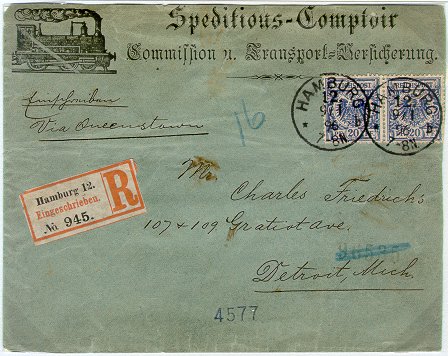 Speditions-Comptoir
Commission u. Transport-Versicherung.
Einschreiben
Via Queenstown
16
HAMBURG
12
9/1
96
7-8N
20
HAMBURG
12
9/1
96
7-8N
20
Hamburg 12.
Eingeschrieben.
No 945.
R
Mr.
Charles Friedrichs
107 & 109 Gratiot ave.
Detroit, Mich.
4577